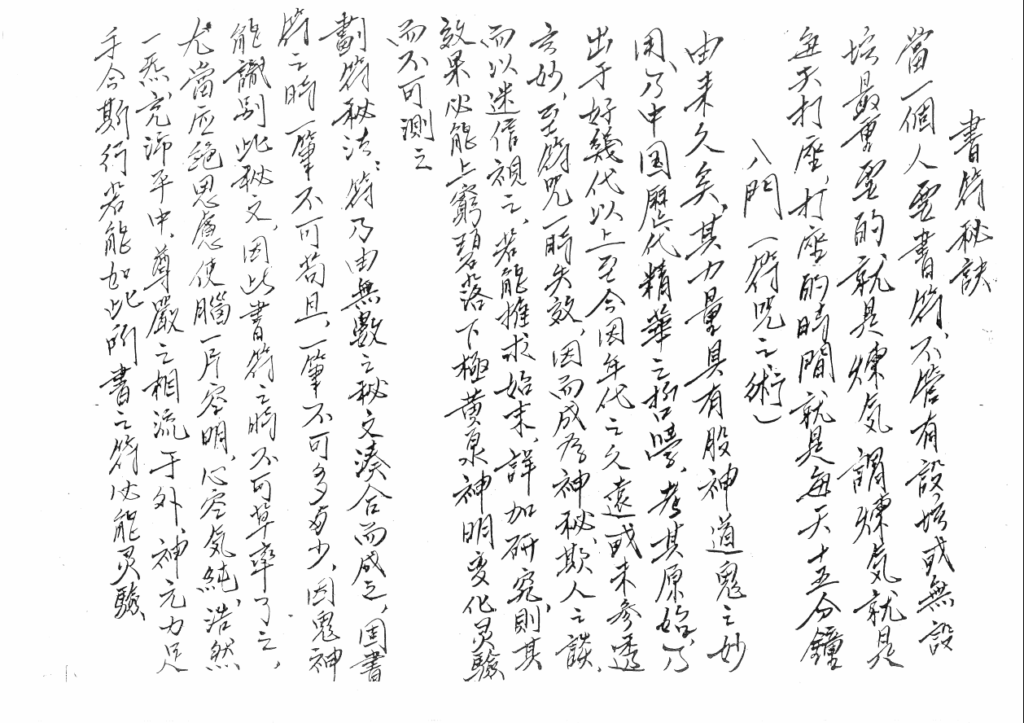 書符秘訣
當一個人要書符、不管有設坛或無設
坛最重要的就是煉気謂煉気就是
每天打座，打座的時間就是每天十五分鐘
入門（符咒之術）
由来久矣，其力量具有股神道鬼之妙
用、乃中国歷代精華之哲學，考其原始，乃
出于好幾代以上至今因年代之久遠或未參透
玄妙，至符咒一時失效，因而成為神秘，欺人之談，
而以迷信視之，若能推求始末，詳加研究，則其
效果必能上窮碧落下極黃泉神明变化灵驗
而不可測之
劃符秘法：符乃由無數之秘文湊合而成之，因書
符之時一筆不可苟且，一筆不可多或少，因鬼神
能識別此秘文，因此書符之時不可草率了之，
尤當应絕思慮使腦一片空明，心空気純，浩然
一炁，充沛乎中，尊嚴之相流于外，神元力足
手令斯行若能如此所書之符必能灵驗